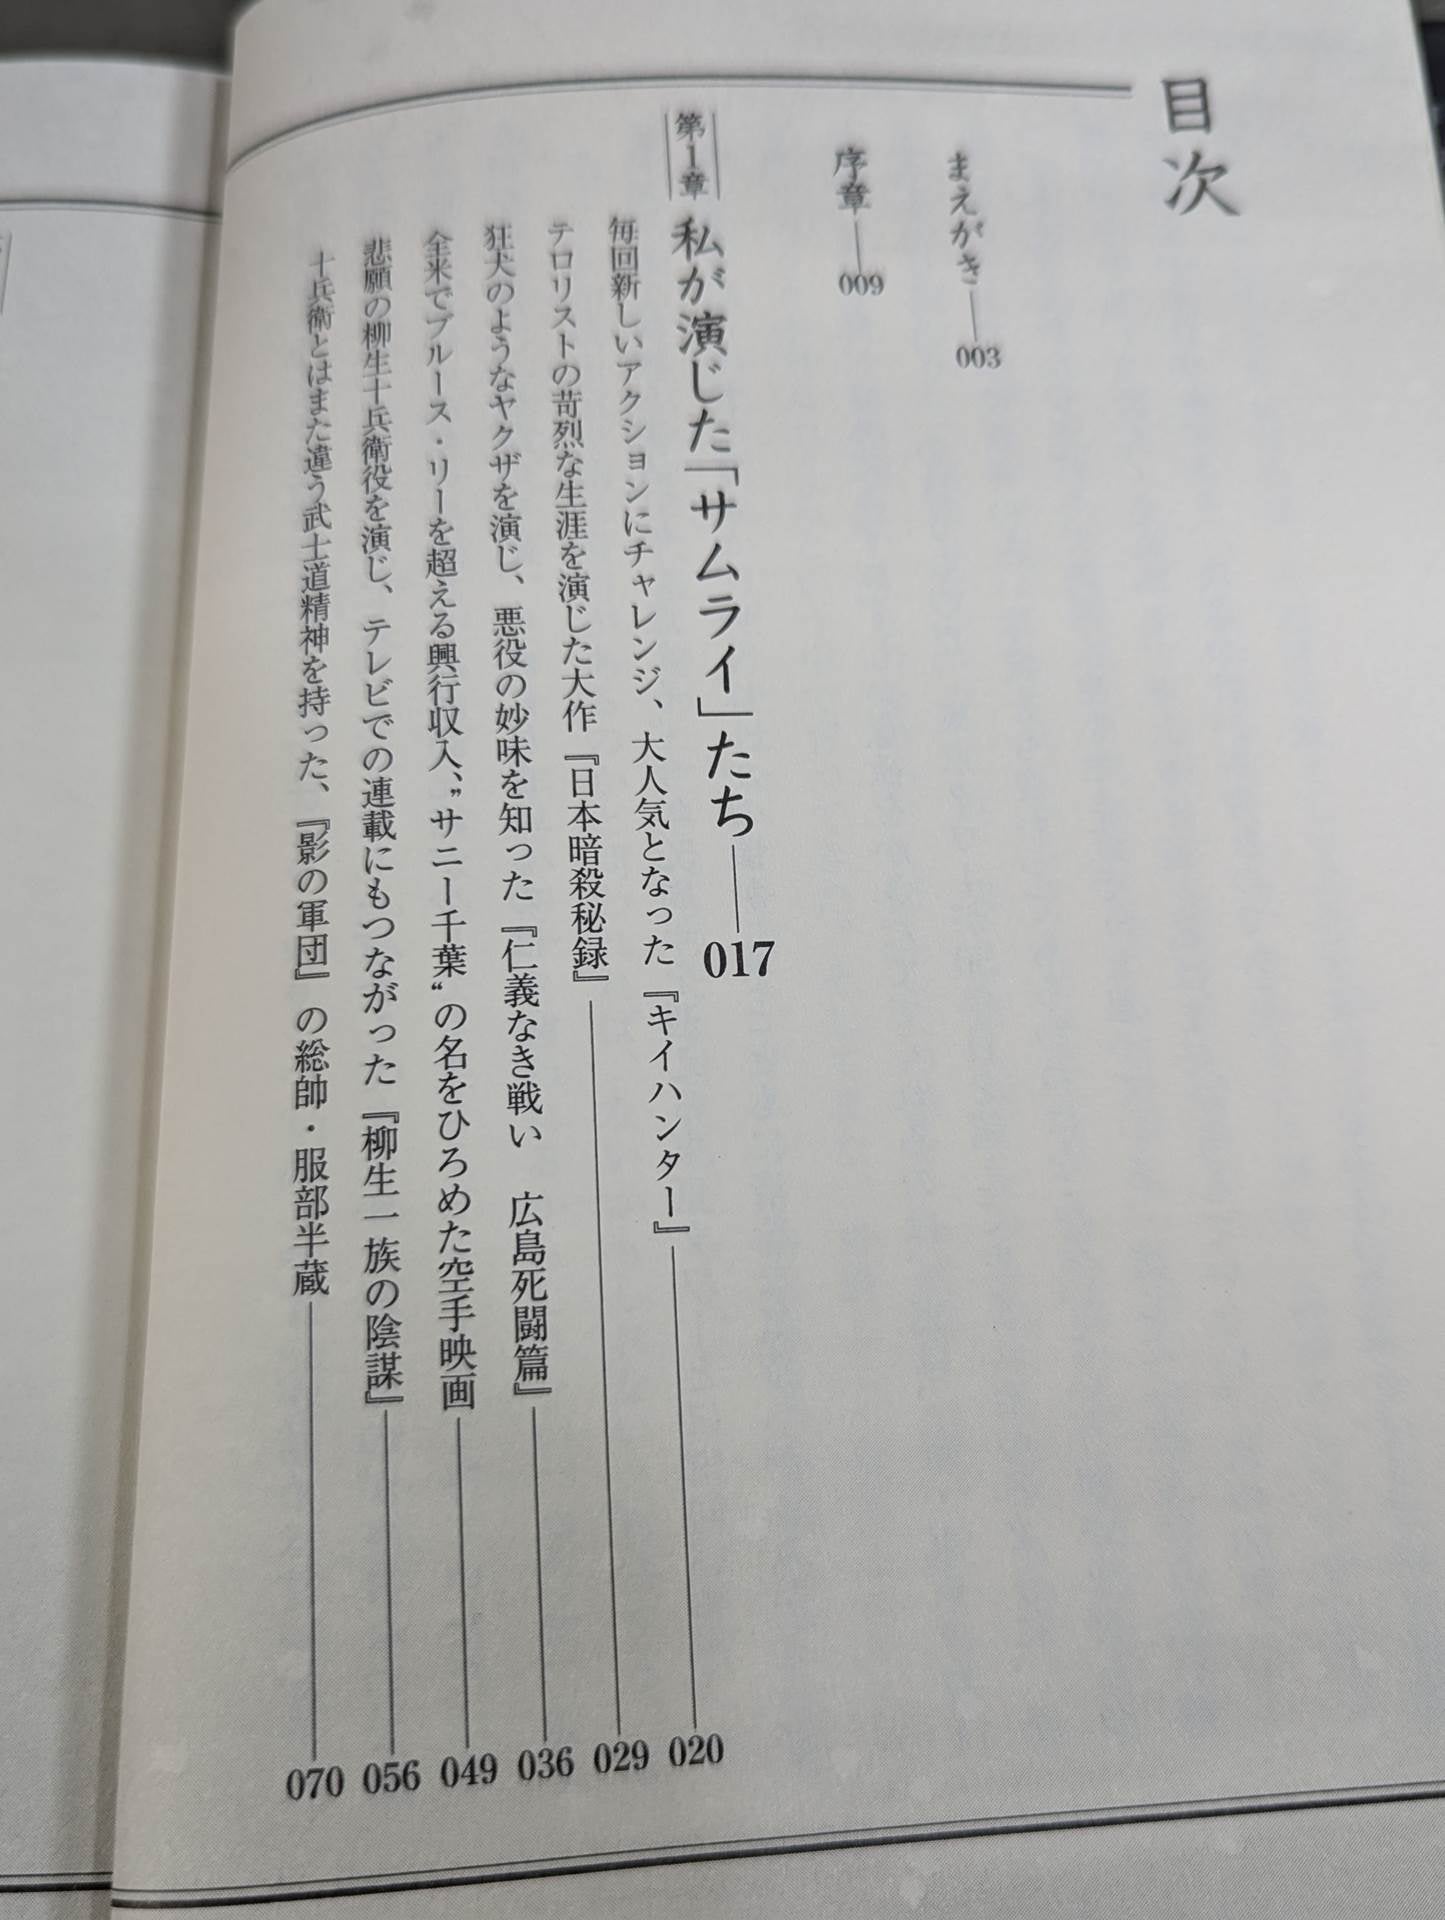 目次
まえがき――003
序章――009
第1章 私が演じた「サムライ」たち――017
毎回新しいアクションにチャレンジ、大人気となった『キイハンター』――020
テロリストの苛烈な生涯を演じた大作『日本暗殺秘録』――029
狂犬のようなヤクザを演じ、悪役の妙味を知った『仁義なき戦い　広島死闘篇』――036
全米でブルース・リーを超える興行収入、”サニー千葉“の名をひろめた空手映画――049
悲願の柳生十兵衛役を演じ、テレビでの連載にもつながった『柳生一族の陰謀』――056
十兵衛とはまた違う武士道精神を持った、『影の軍団』の総帥・服部半蔵――070